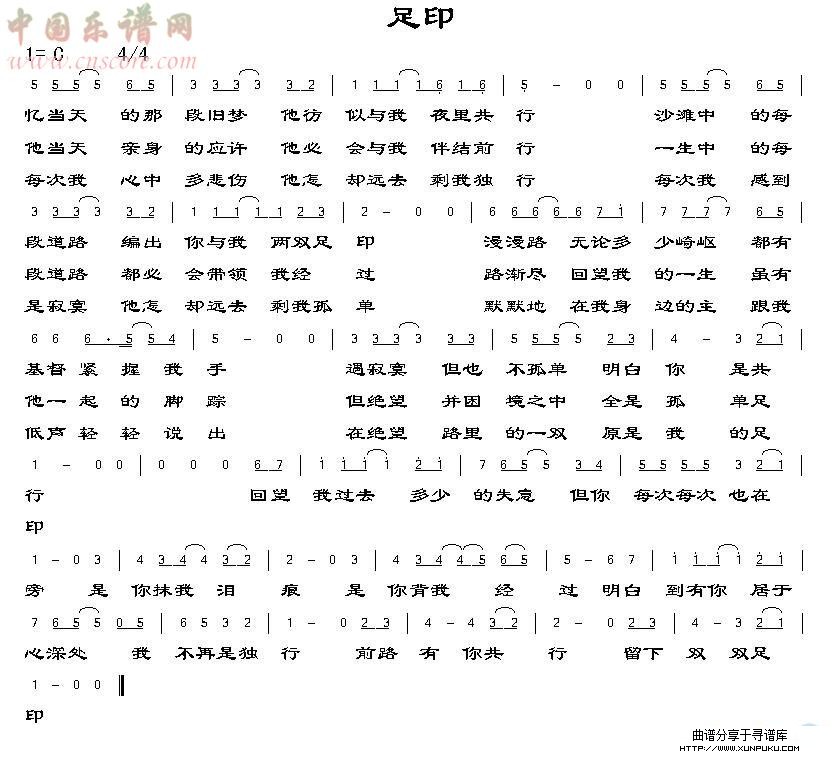 足印
中国乐谱网
1= C 4/4
www.cnscore.com
5 5 5 5 5 6 5 | 3 3 3 3 3 3 2 | 1 1 1 1 6 1 6 | 5 - 0 0 | 5 5 5 5 5 6 5 |
忆当天 的那 段旧梦 他彷 似与我 夜里共 行 沙滩中 的每
他当天 亲身 的应许 他必 会与我 伴结前 行 一生中 的每
每次我 心中 多悲伤 他怎 却远去 剩我独 行 每次我 感到
3 3 3 3 3 3 2 | 1 1 1 1 1 2 3 | 2 - 0 0 | 6 6 6 6 6 7 1 | 7 7 7 7 7 6 5 |
段道路 编出 你与我 两双足 印 漫漫路 无论多 少崎岖 都有
段道路 都必 会带领 我经 过 路渐尽 回望我 的一生 虽有
是寂寞 他怎 却远去 剩我孤 单 默默地 在我身 边的主 跟我
6 6 6 · 5 5 5 4 | 5 - 0 0 | 3 3 3 3 3 3 3 | 5 5 5 5 5 4 3 | 4 - 3 2 1 |
基督 紧 握 我 手 遇寂寞 但也 不孤单 明白 你 是共
他一 起 的 脚 踪 但绝望 并困 境之中 全是 孤 单足
低声 轻 轻 说 出 在绝望 路里 的一双 原是 我 的足
1 - 0 0 | 0 0 0 6 7 | 1 1 1 1 2 1 | 7 6 5 5 3 4 | 5 5 5 5 5 3 2 1 |
行 回望 我过去 多少 的失意 但你 每次每次 也在
印
1 - 0 3 | 4 3 4 4 3 2 | 2 - 0 3 | 4 3 4 4 5 6 5 | 5 - 6 7 | 1 1 1 1 2 1 |
旁 是 你抹我 泪 痕 是 你背我 经 过 明白 到有你 居于
7 6 5 5 0 5 | 6 5 3 2 | 1 - 0 2 3 | 4 - 4 3 2 | 2 - 0 2 3 | 4 - 3 2 1 |
心深处 我 不再是独 行 前路 有 你共 行 留下 双 双足
1 - 0 0
印
曲谱分享于寻谱库
HTTP://WWW.XUNPUKU.COM